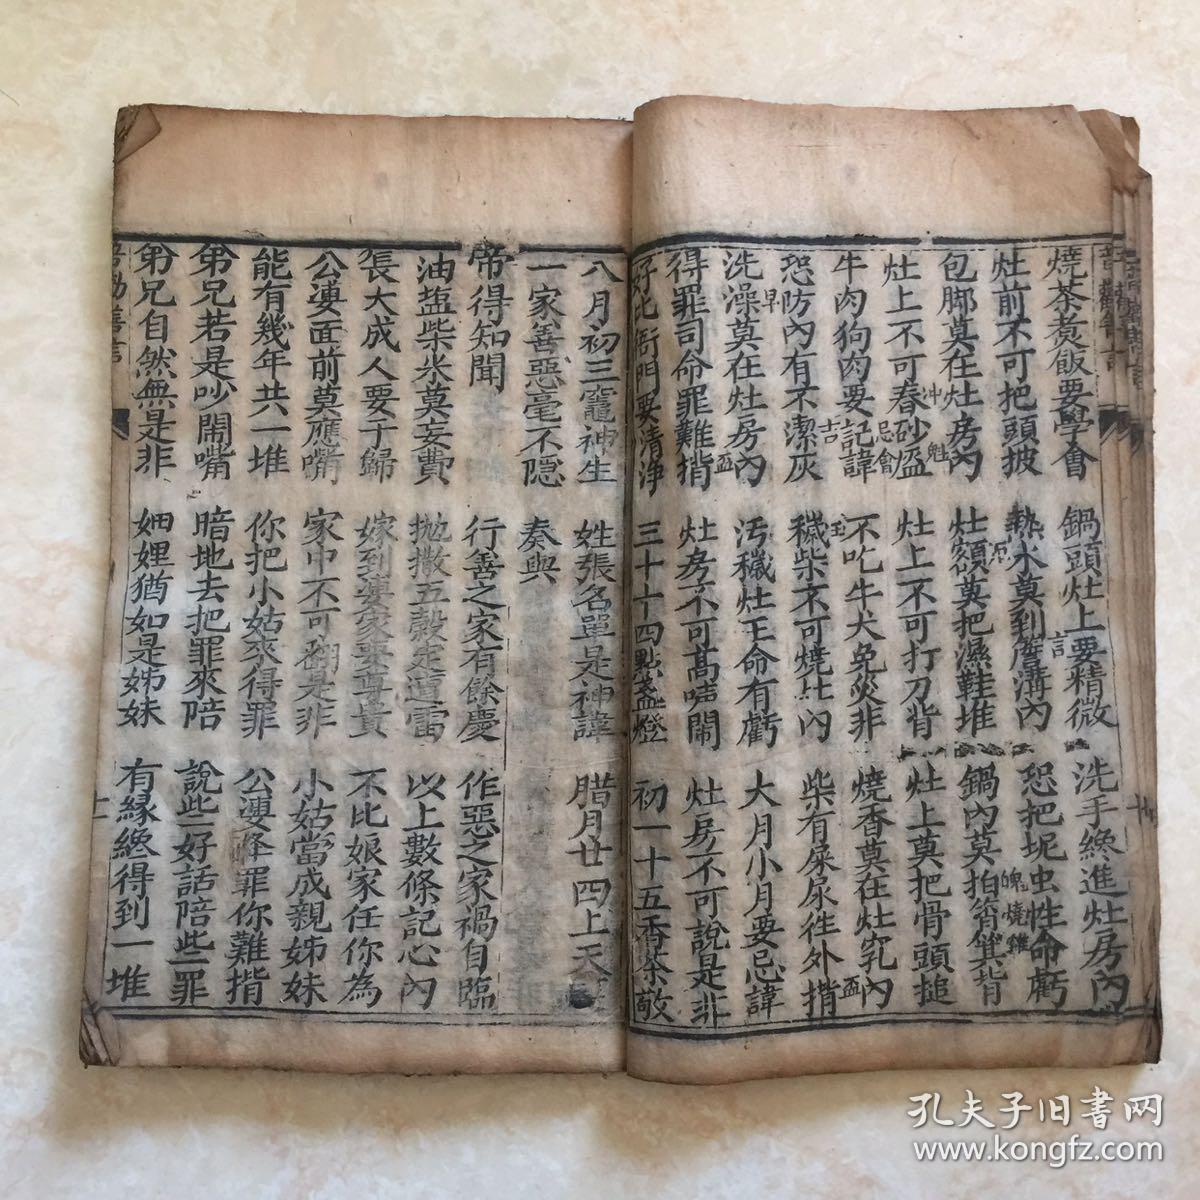 燒茶煑飯要學會 鍋頭灶上要精微 洗手纔進灶房內
灶前不可把頭披 熱水莫到簷溝內 恐把坭虫性命虧
包脚莫在灶房內 灶額莫把濕鞋堆 鍋內莫拍筲箕背
灶上不可春砂盔 灶上不可打刀背 灶上莫把骨頭搥
牛肉狗肉要記諱 不吃牛犬免災非 燒香莫在灶孔內
恐防內有不潔灰 穢柴不可燒灶內 柴有屎尿徃外揹
洗澡莫在灶房內 汚穢灶王命有虧 大月小月要忌諱
得罪司命罪難揹 灶房不可高唁鬧 灶房不可說是非
好比衙門要清淨 三十十四點盞燈 初一十五香茶敬
八月初三竈神生 姓張名單是神諱 腊月廿四上天
一家善惡毫不隠 奏與
帝得知聞 行善之家有餘慶 作惡之家禍自臨
油盐柴米莫妄費 抛撒五榖定遭雷 以上數條記心內
長大成人要于歸 嫁到婆家要尊貴 不比娘家任你為
公婆面前莫應嘴 家中不可翻是非 小姑當成親姊妹
能有幾年共一堆 你把小姑來得罪 公婆降罪你難揹
弟兄若是吵鬧嘴 暗地去把罪來陪 說些好話陪些罪
弟兄自然無是非 妯娌猶如是姊妹 有緣纔得到一堆
孔夫子旧書网
www.kongfz.com